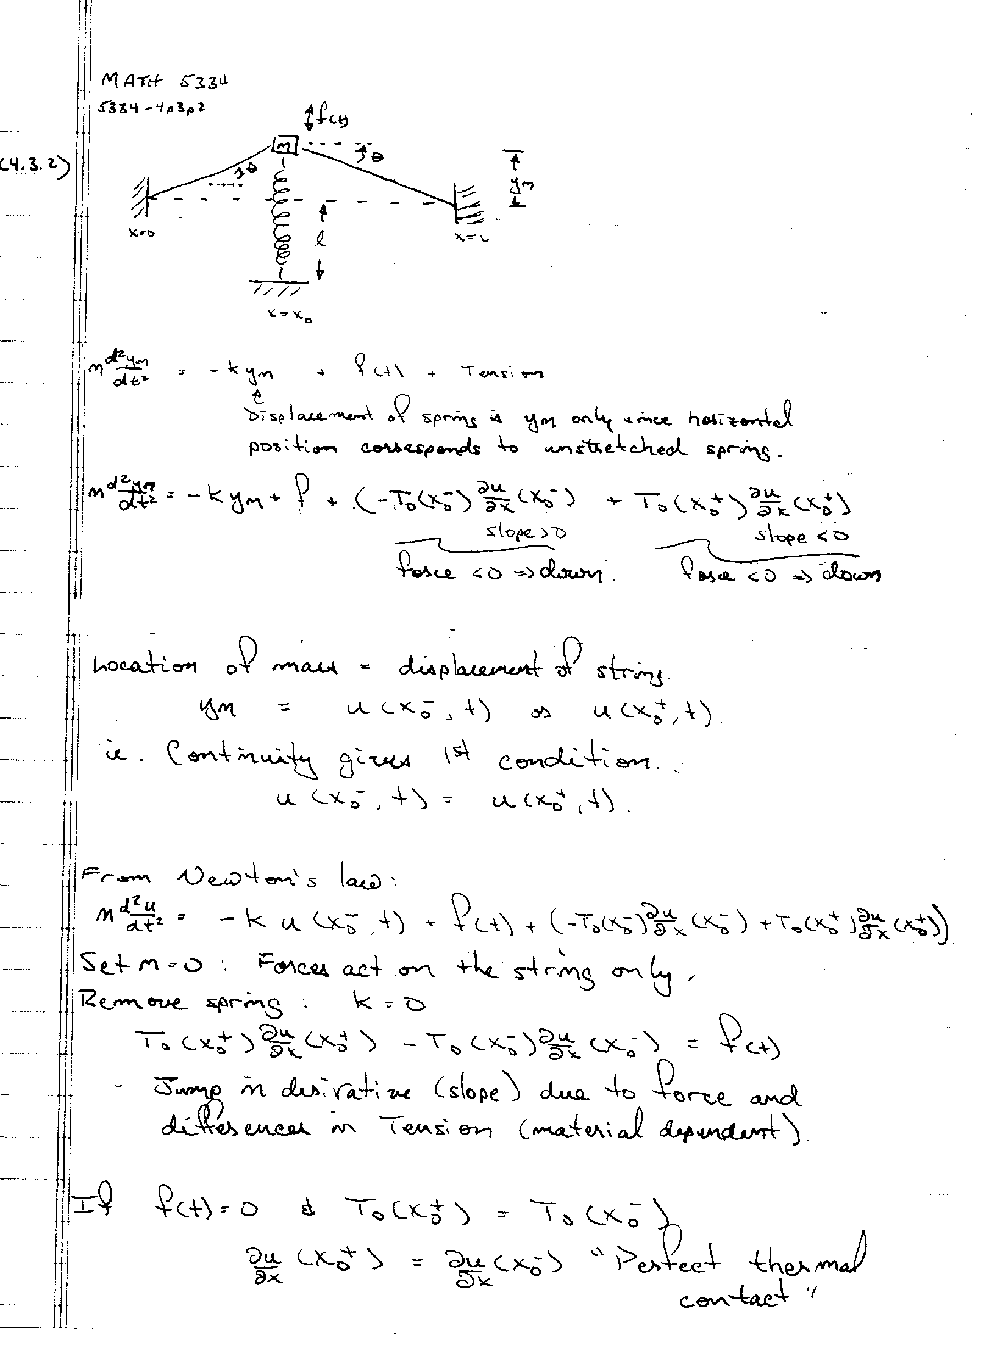 MATH 5334
5334-4p3p2
(4.3.2)
f(t)
m
θ
θ
y_m
l
x=0
x=L
x=x_0
m d²y_m/dt² = -k y_m + f(t) + Tension
Displacement of spring is y_m only since horizontal
position corresponds to unstretched spring.
m d²y_m/dt² = -k y_m + f + (-T_0(x_0^-) ∂u/∂x (x_0^-) + T_0(x_0^+) ∂u/∂x (x_0^+)
slope>0 slope<0
force <0 ⇒ down. force <0 ⇒ down
Location of mass = displacement of string.
y_m = u(x_0^-, t) or u(x_0^+, t).
ie. Continuity gives 1st condition.
u(x_0^-, t) = u(x_0^+, t).
From Newton's law:
m d²u/dt² = -k u(x_0^-, t) + f(t) + (-T_0(x_0^-) ∂u/∂x (x_0^-) + T_0(x_0^+) ∂u/∂x (x_0^+))
Set m=0 : Forces act on the string only.
Remove spring : k=0
T_0(x_0^+) ∂u/∂x (x_0^+) - T_0(x_0^-) ∂u/∂x (x_0^-) = f(t)
- Jump in derivative (slope) due to force and
differences in Tension (material dependent).
If f(t)=0 & T_0(x_0^+) = T_0(x_0^-)
∂u/∂x (x_0^+) = ∂u/∂x (x_0^-) "Perfect thermal
contact"